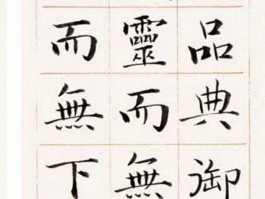 品典御
靈而無
而無下